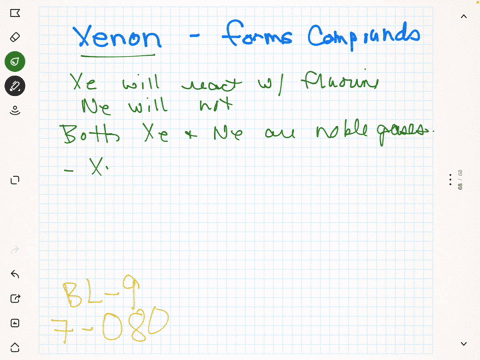 Xenon - forms Compounds
Xe will react w/ fluorine
Ne will not
Both Xe & Ne are noble gases.
- X
BL-9
7-080